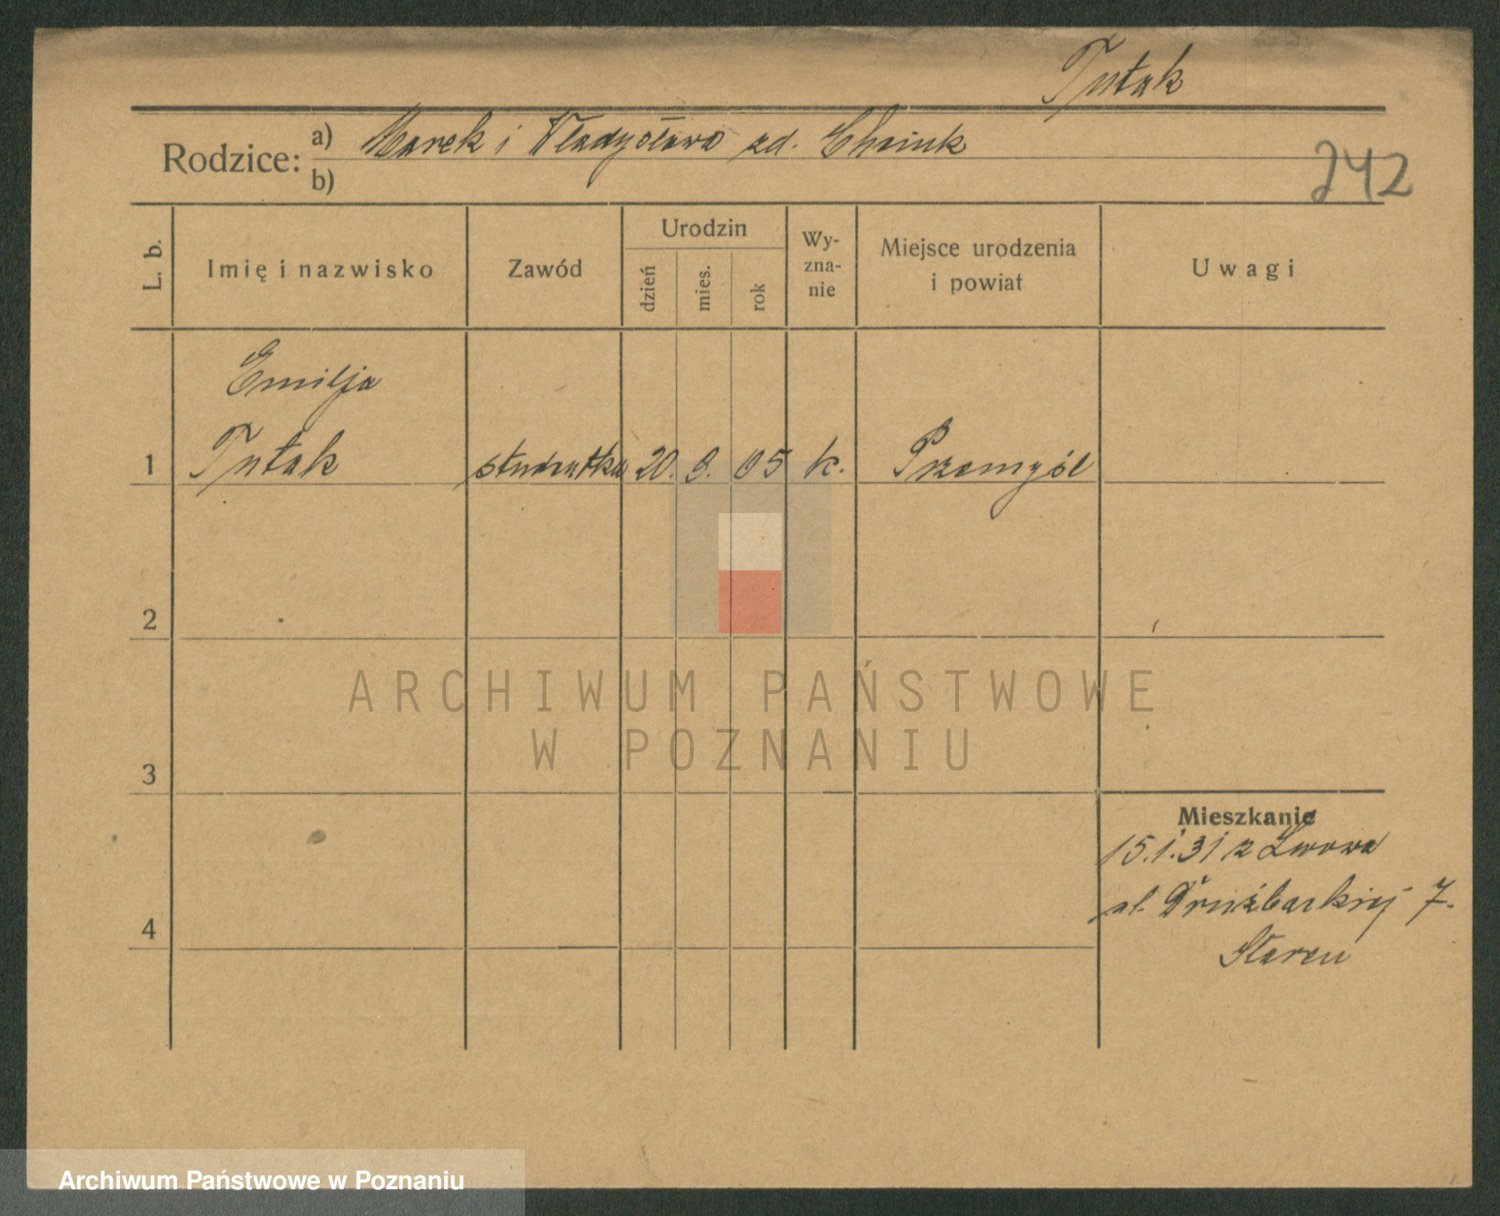 Tutak
Rodzice: a) Marek i Władysława zd.
b)
242
L. b.
Imię i nazwisko
Zawód
Urodzin
dzień
mies.
rok
Wy-
zna-
nie
Miejsce urodzenia
i powiat
Uwagi
Emilja
1 Tutak studentka 20. 9. 05 k. Przemyśl
2
ARCHIWUM PAŃSTWOWE
W POZNANIU
3
Mieszkanie
15.1.31 z Lwowa
ul. Drużbackiej 7.
4
Archiwum Państwowe w Poznaniu